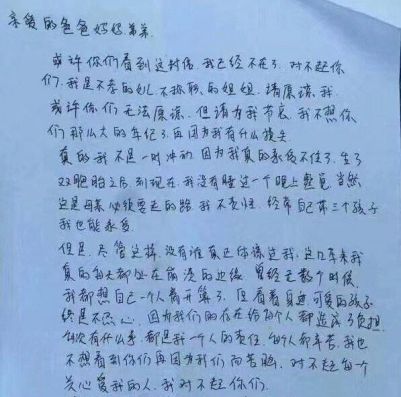 亲爱的爸爸妈妈弟弟
或许你们看到这封信，我已经不在了，对不起你
们，我是不孝的女儿，不称职的姐姐，请原谅我，
或许你们无法原谅，但请为我节哀，我不想你
们那么大的年纪了再因为我有什么损失
真的我不是一时冲动，因为我真的承受不住了，生了
双胞胎之后，到现在，我没有睡过一个晚上整觉，当然
这是母亲必须要走的路，我不责怪，经常自己带三个孩子
我也能承受
但是，尽管这样，没有谁真正体谅过我，这几年来我
真的每天都处在崩溃的边缘，曾经无数个时候，
我都想自己一个人离开算了，但看着身边可爱的孩子
终是不忍心，因为我们的存在给每个人都造成了负担，
每次有什么事，都是我一个人的责任，每个人都辛苦，我也
不想看到你们再因为我们而苦恼，对不起每一个
关心爱我的人，我对不起你们